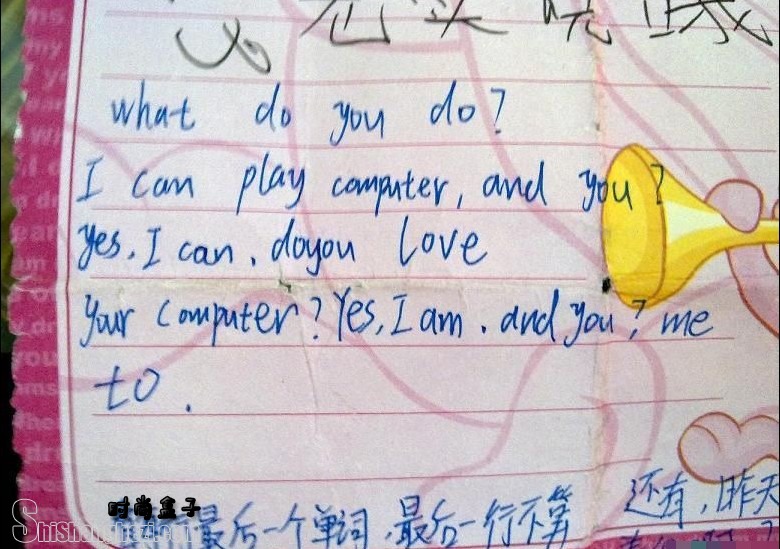 what do you do?
I can play computer, and you?
yes, I can. doyou love
your computer? Yes, I am. and you? me
to.
时尚盒子
Shishanghezi.com
最后一个单词,最后一行不算
还有,昨天